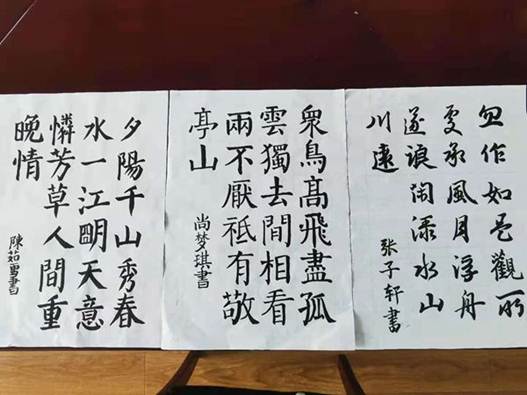 作如是觀所
更承風月浮舟
逐浪闲添水山
川遠
张子轩書
衆鳥髙飛盡孤
雲獨去間相看
兩不厭祗有敬
亭山
尚梦琪書
夕陽千山秀春
水一江朙天意
憐芳草人間重
晚情
陳茹雪書